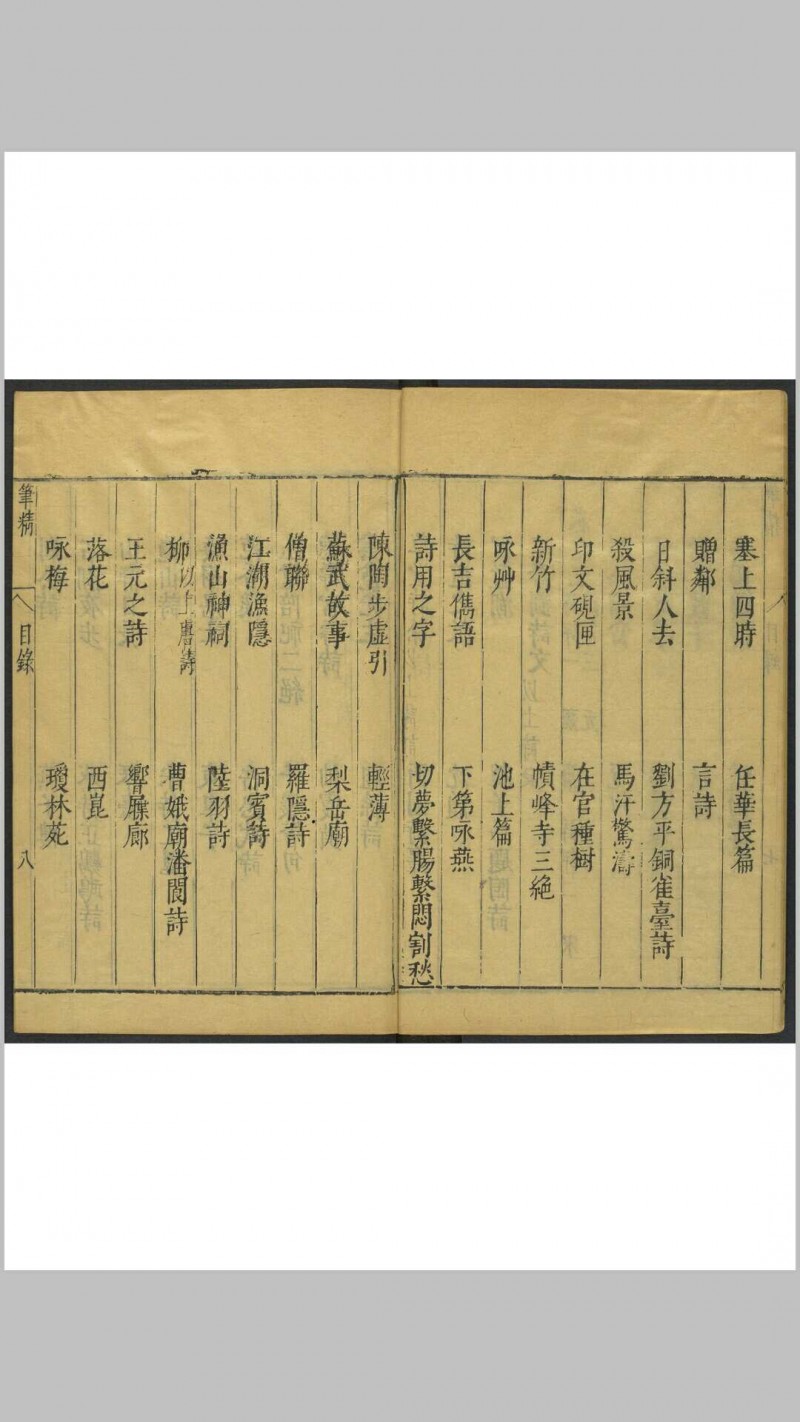 塞上四時　任華長篇
贈鄰　言詩
日斜人去　劉方平銅雀臺詩
殺風景　馬汗驚濤
印文硯匣　在官種樹
新竹　幘峰寺三絕
咏艸　池上篇
長吉儁語　下第咏燕
詩用之字　切夢繫腸繫悶割愁
陳陶步虛引　輕薄
蘇武故事　梨岳廟
僧聯　羅隱詩
江湖漁隱　洞賓詩
漁山神祠　陸羽詩
柳以上唐詩　曹娥廟潘閬詩
王元之詩　響屧廊
落花　西崑
咏梅　瓊林苑
筆精　目錄　八